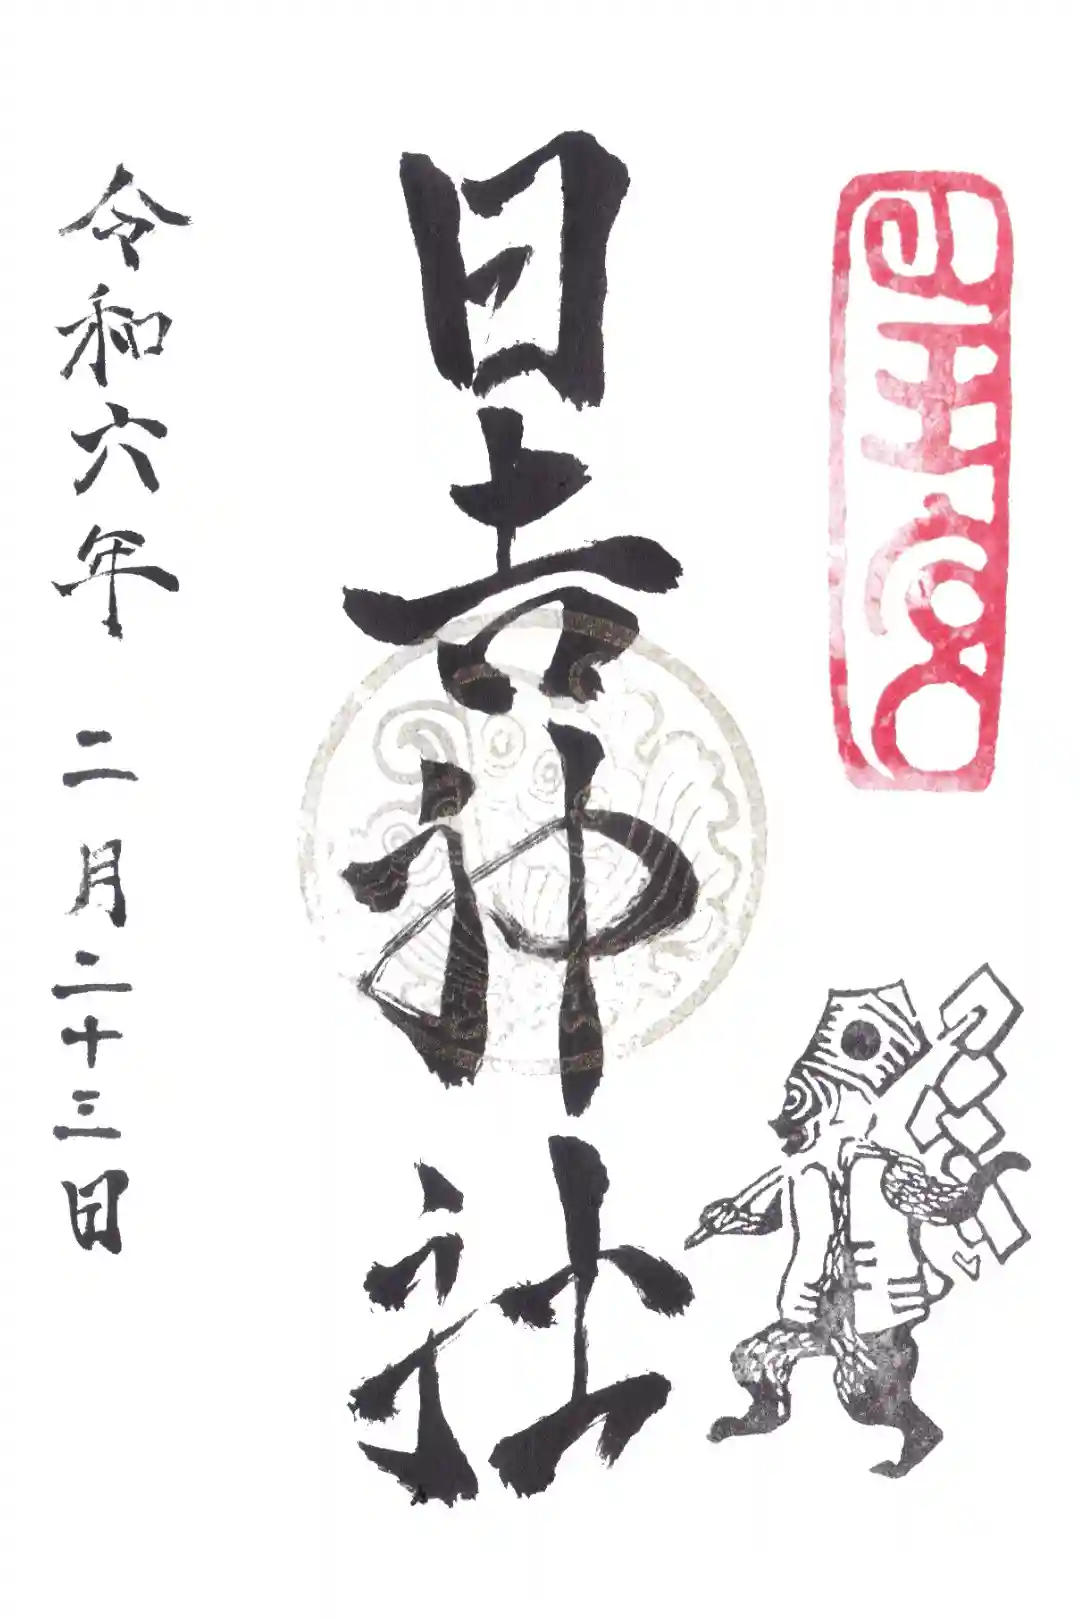 日吉神社
令和六年 二月二十三日